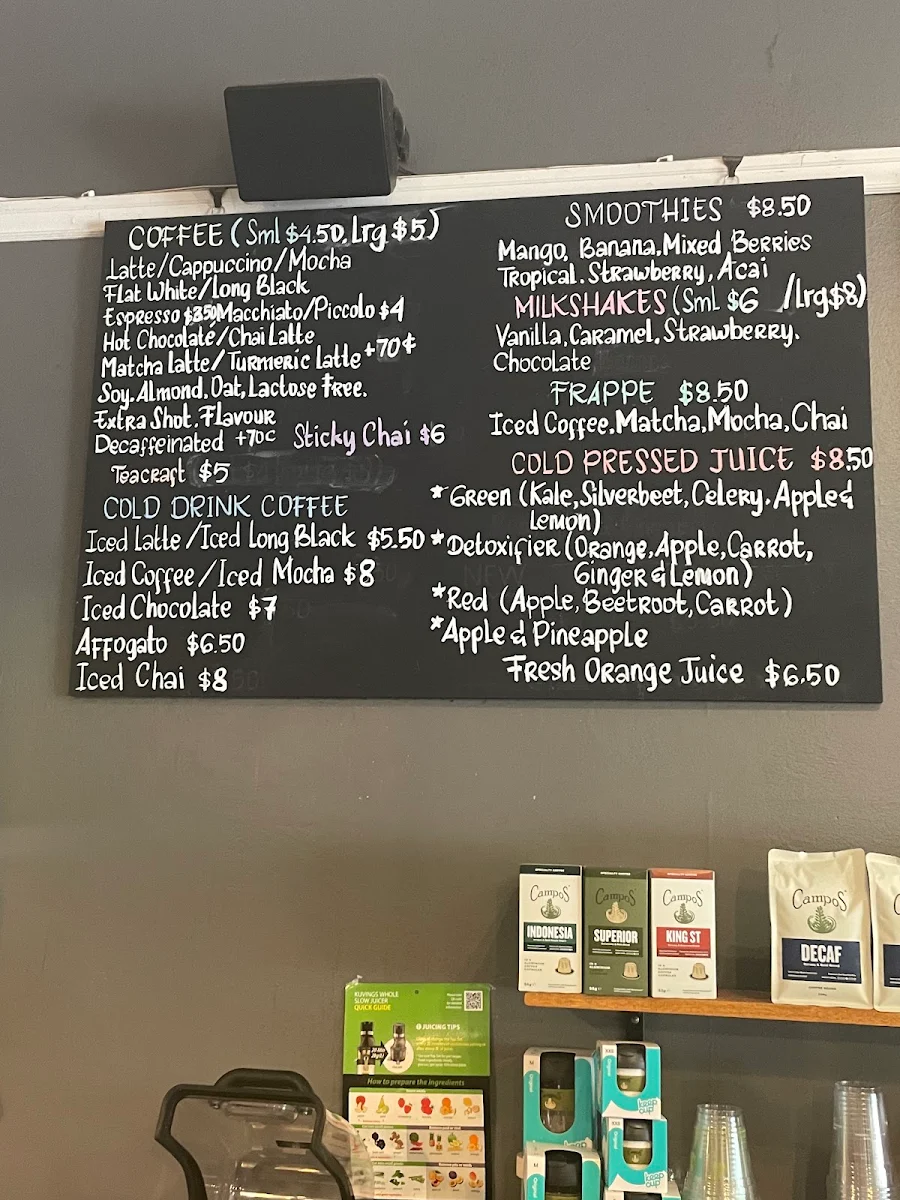 COFFEE (Sml $4.50, Lrg $5)
Latte/Cappuccino/Mocha
Flat White/Long Black
Espresso $3.50 Macchiato/Piccolo $4
Hot Chocolate/Chai Latte
Matcha latte/Turmeric Latte +70¢
Soy, Almond, Oat, Lactose Free.
Extra Shot, Flavour
Decaffeinated +70c Sticky Chai $6
Teacraft $5
COLD DRINK COFFEE
Iced Latte/Iced Long Black $5.50
Iced Coffee/Iced Mocha $8
Iced Chocolate $7
Affogato $6.50
Iced Chai $8
SMOOTHIES $8.50
Mango, Banana, Mixed Berries
Tropical. Strawberry, Acai
MILKSHAKES (Sml $6 /Lrg $8)
Vanilla, Caramel, Strawberry.
Chocolate
FRAPPE $8.50
Iced Coffee. Matcha, Mocha, Chai
COLD PRESSED JUICE $8.50
*Green (Kale, Silverbeet, Celery. Apple &
Lemon)
*Detoxifier (Orange, Apple, Carrot,
Ginger & Lemon)
*Red (Apple, Beetroot, Carrot)
*Apple & Pineapple
Fresh Orange Juice $6.50
CAMPOS
INDONESIA
CAMPOS
SUPERIOR
CAMPOS
KING ST
CAMPOS
DECAF
KUVINGS WHOLE
SLOW JUICER
QUICK GUIDE
JUICING TIPS
How to prepare the ingredients
keep
cup
keep
cup
keep